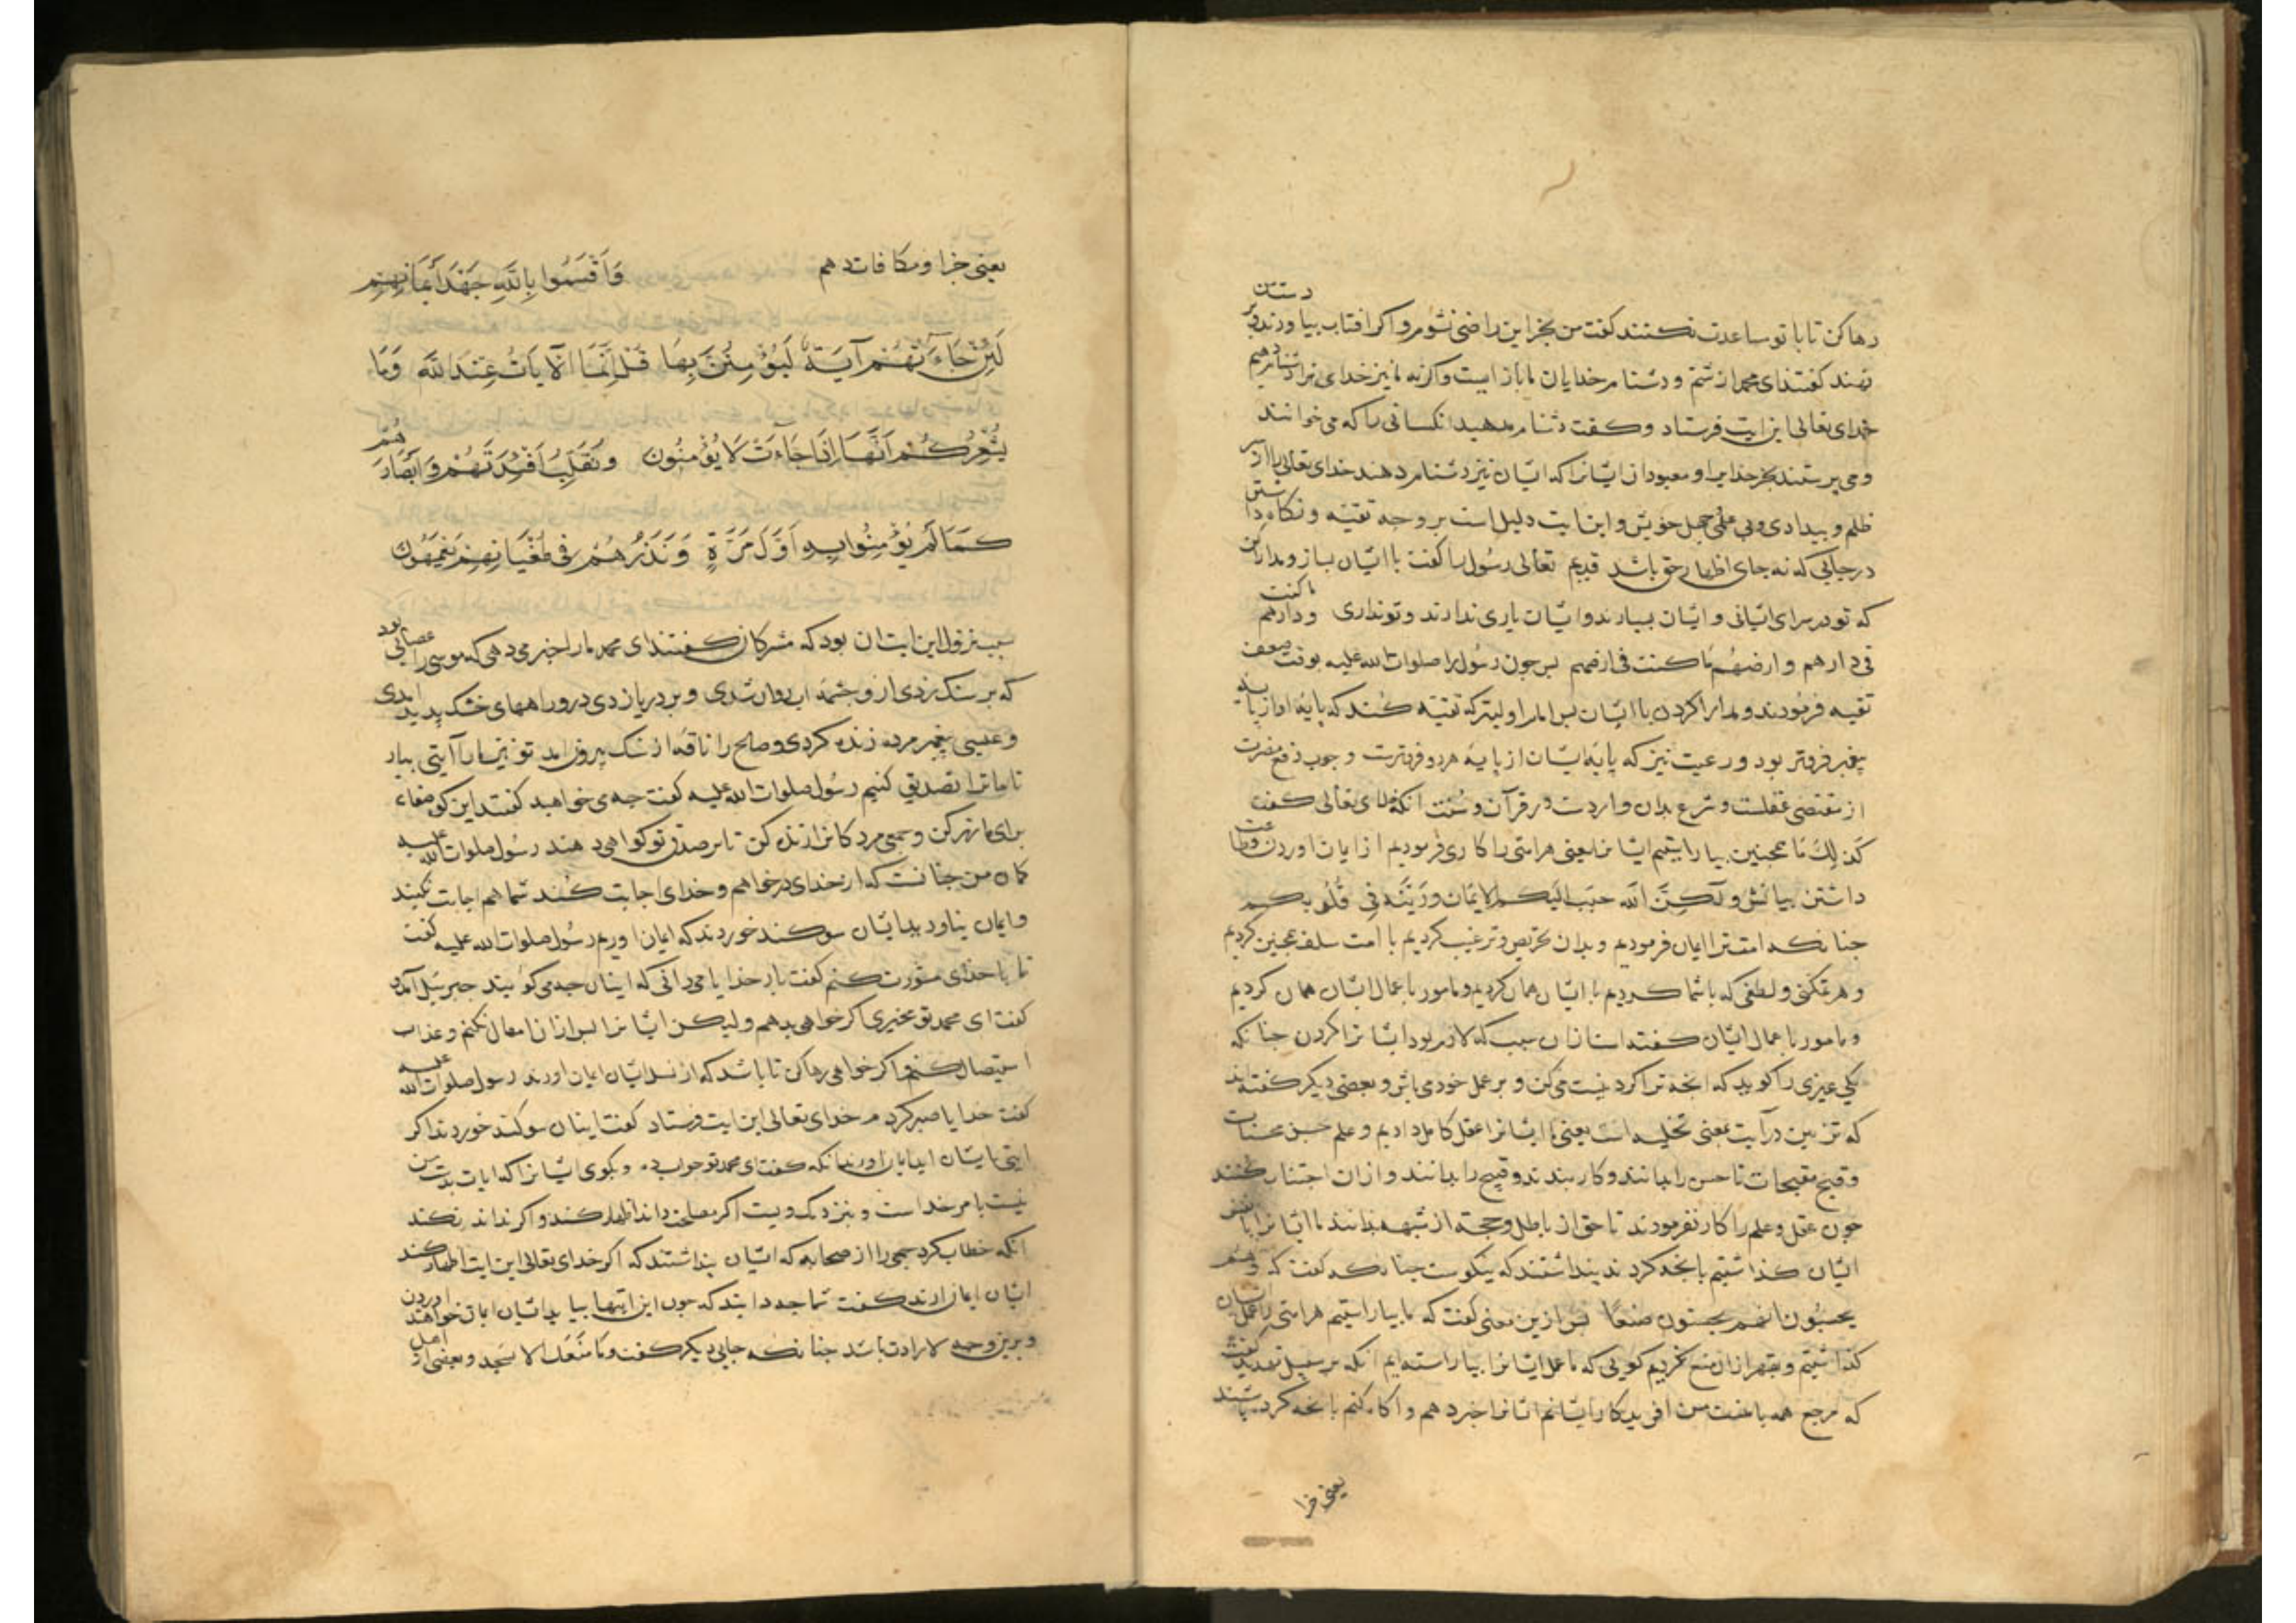 رها کن تا با تو مساعدت نکنند کفت من بجز این راضی نشوم و اکر افتاب بیاورند و بر دستت
نهند کفتند ای محمد از شتم و دشنام خدایان ما باز ایست و اکر نه ما نیز خدای ترا دشنام دهیم
خدای تعالی این ایت فرستاد و کفت دشنام مدهید انکسانی را که می خوانند
و می پرستند بجز خدایرا و معبودان ایشانرا که ایشان نیز دشنام دهند خدای تعالی را از سر
ظلم و بیدادی و بی علمی و جهل خویش و این ایت دلیل است بر وجه تقیه و نکاه داشتن
در جایی که نه جای اظهار حق باشد قدیم تعالی رسول را کفت با ایشان بساز و مدارا کن
که تو در سرای ایشانی و ایشان بسیارند و ایشان یاری ندارند و تو نداری و دارهم ما کنت
فی دارهم و ارضهم ما کنت فی ارضهم بس جون رسول را صلوات الله علیه بوقت ضعف
تقیه فرمودند و مدارا کردن با ایشان بس امام اولیتر که تقیه کند که پایه او از پایه
پیغمبر فروتر بود و رعیت نیز که پایه ایشان از پایه هر دو فروترست و وجوب دفع مضرت
از مقتضی عقلست و شرع بدان واردست در قرآن و سنت انکه خدای تعالی کفت
کذلک ما همجنین بیاراستیم ایشانرا یعنی هر امتی را کاری فرمودیم از ایمان اوردن و طاعت
داشتن بیانش و لکن الله حبب الیکم الایمان و زینه فی قلوبکم
جنانکه امت ترا ایمان فرمودیم و بدان تحریص و ترغیب کردیم با امت سلف همجنین کردیم
و هر تمکنی و لطفی که با شما کردیم با ایشان همان کردیم و مامور با عمال ایشان همان کردیم
و مامور با عمال ایشان کفته است از ان سبب که لازم بود ایشانرا کردن جنانکه
یکی غیری را کوید که انجه ترا کردنیست می کن و بر عمل خود می باش و بعضی دیکر کفته اند
که تزیین در آیت بمعنی تخلیه است یعنی ما ایشانرا عقل کامل دادیم و علم حسن محسنات
و قبح مقبحات تا حسن را بدانند و کار بندند و قبیح را بدانند و از ان اجتناب کنند
جون عقل و علم را کار نفرمودند تا حق از باطل و حجة از شبهه بدانند ما ایشانرا با نفس
ایشان کذاشتیم بانجه کردند بنداشتند که نیکوست جنانکه کفت که و هم
یحسبون انهم یحسنون صنعا بس از این معنی کفت که ما بیاراستیم هر امتی را عمل ایشان
کذاشتیم و بقهر از ان منع نکردیم کویی که ما عمل ایشانرا بیاراسته ایم انکه بر سبیل تهدید کفت
که مرجع همه با منست من افریدکار ایشانم ایشانرا خبر دهم و اکاه کنم بانجه کرده باشند
یعنی جزا
یعنی جزا و مکافات دهم وَاَقْسَمُوا بِاللهِ جَهْدَ اَیْمَانِهِمْ
لَئِنْ جَاءَتْهُمْ آیَةٌ لَیُؤْمِنُنَّ بِهَا قُلْ اِنَّمَا الْآیَاتُ عِنْدَ اللهِ وَمَا
یُشْعِرُکُمْ اَنَّهَا اِذَا جَاءَتْ لَا یُؤْمِنُون وَنُقَلِّبُ اَفْئِدَتَهُمْ وَاَبْصَارَهُمْ
کَمَا لَمْ یُؤْمِنُوا بِهِ اَوَّلَ مَرَّةٍ وَنَذَرُهُمْ فِی طُغْیَانِهِمْ یَعْمَهُونَ
سبب نزول این ایت ان بود که مشرکان کفتند ای محمد ما را خبر می دهی که موسی را عصایی بود
که بر سنک زدی از و جشمه اب روان شدی و بر دریا زدی درو راههای خشک بدید امدی
و عیسی پیغمبر مرده زنده کردی و صالح را ناقه از سنک بیرون امد تو نیز ما را آیتی بیار
تا ما ترا تصدیق کنیم رسول صلوات الله علیه کفت جه می خواهید کفتند این کوه صفا
برای ما زر کن و جمعی مردکانرا زنده کن تا بر صدق تو کواهی دهند رسول صلوات الله علیه
کمان من جنانست که از خدای درخواهم و خدای اجابت کند شما هم اجابت نکنید
و ایمان نیاورید ایشان سوکند خوردند که ایمان اوریم رسول صلوات الله علیه کفت
تا با خدای مشورت کنم کفت بار خدایا می دانی که اینان جه می کویند جبرئیل آمد
کفت ای محمد تو مخیری اکر خواهی بدهم ولیکن ایشانرا بس از ان امهال نکنم و عذاب
استیصال کنم و اکر خواهی رها کن تا باشد که از نسل ایشان ایمان اورند رسول صلوات الله علیه
کفت خدایا صبر کردم خدای تعالی این ایت فرستاد کفت اینان سوکند خوردند اکر
ایتی بایشان اید ایمان اورند انکه کفت ای محمد تو جواب ده و بکوی ایشانرا که ایات بدست من
نیست بامر خداست و بنزدیک ویست اکر مصلحت داند اظهار کند و اکر نداند نکند
انکه خطاب کرد جمعی را از صحابه که ایشان بنداشتند که اکر خدای تعالی این ایت اظهار کند
ایشان ایمان ارند کفت شما جه دانید که جون این ایتها بیاید ایشان ایمان نخواهند اوردن
و برین وجه لا زیادت باشد جنانکه جایی دیکر کفت و ما منعک الا تسجد و بعضی از اهل